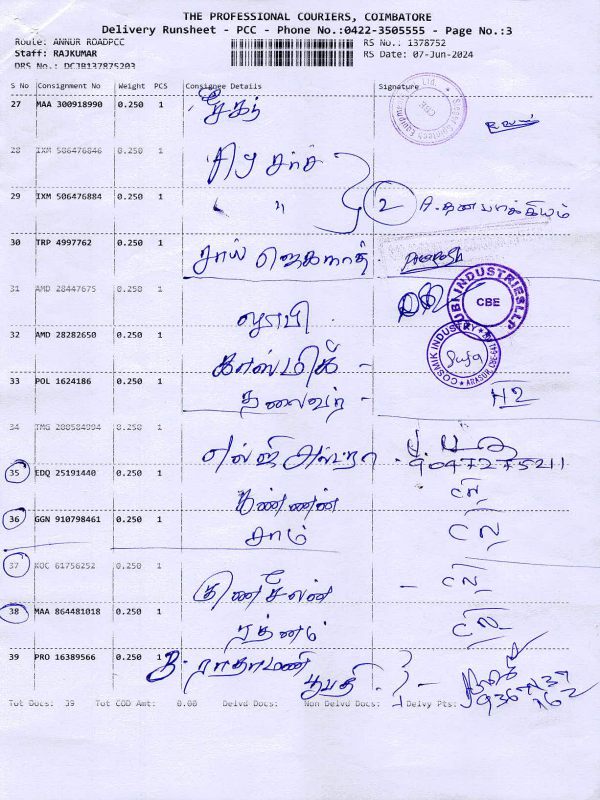 THE PROFESSIONAL COURIERS, COIMBATORE
Delivery Runsheet - PCC - Phone No.:0422-3505555 - Page No.:3
Route: ANNUR ROADPCC RS No.: 1378752
Staff: RAJKUMAR RS Date: 07-Jun-2024
DRS No.: DCJB137875203
S No Consignment No Weight PCS Consignee Details Signature
27 MAA 300918990 0.250 1 சேகர்
28 IXM 506476846 0.250 1
29 IXM 506476884 0.250 1 " 2 A.தனபாக்கியம்
30 TRP 4997762 0.250 1 சாய் ஜெகநாத்
31 AMD 28447675 0.250 1
UBI INDUSTRIES LLP CBE
32 AMD 28282650 0.250 1 காஸ்மிக் -
COSMIK INDUSTRY ARASUR, CBE
33 POL 1624186 0.250 1 தலைவர் -
34 TMG 200584994 0.250 1
9047275211
35 EDQ 25191440 0.250 1 கண்ணன்
36 GGN 910798461 0.250 1 சாம்
37 KOC 61756252 0.250 1 குணசீலன் -
38 MAA 864481018 0.250 1 ரத்னம்
39 PRO 16389566 0.250 1 B. ராதாமணி
பூபதி
Tot Docs: 39 Tot COD Amt: 0.00 Delvd Docs: Non Delvd Docs: Delvy Pts: